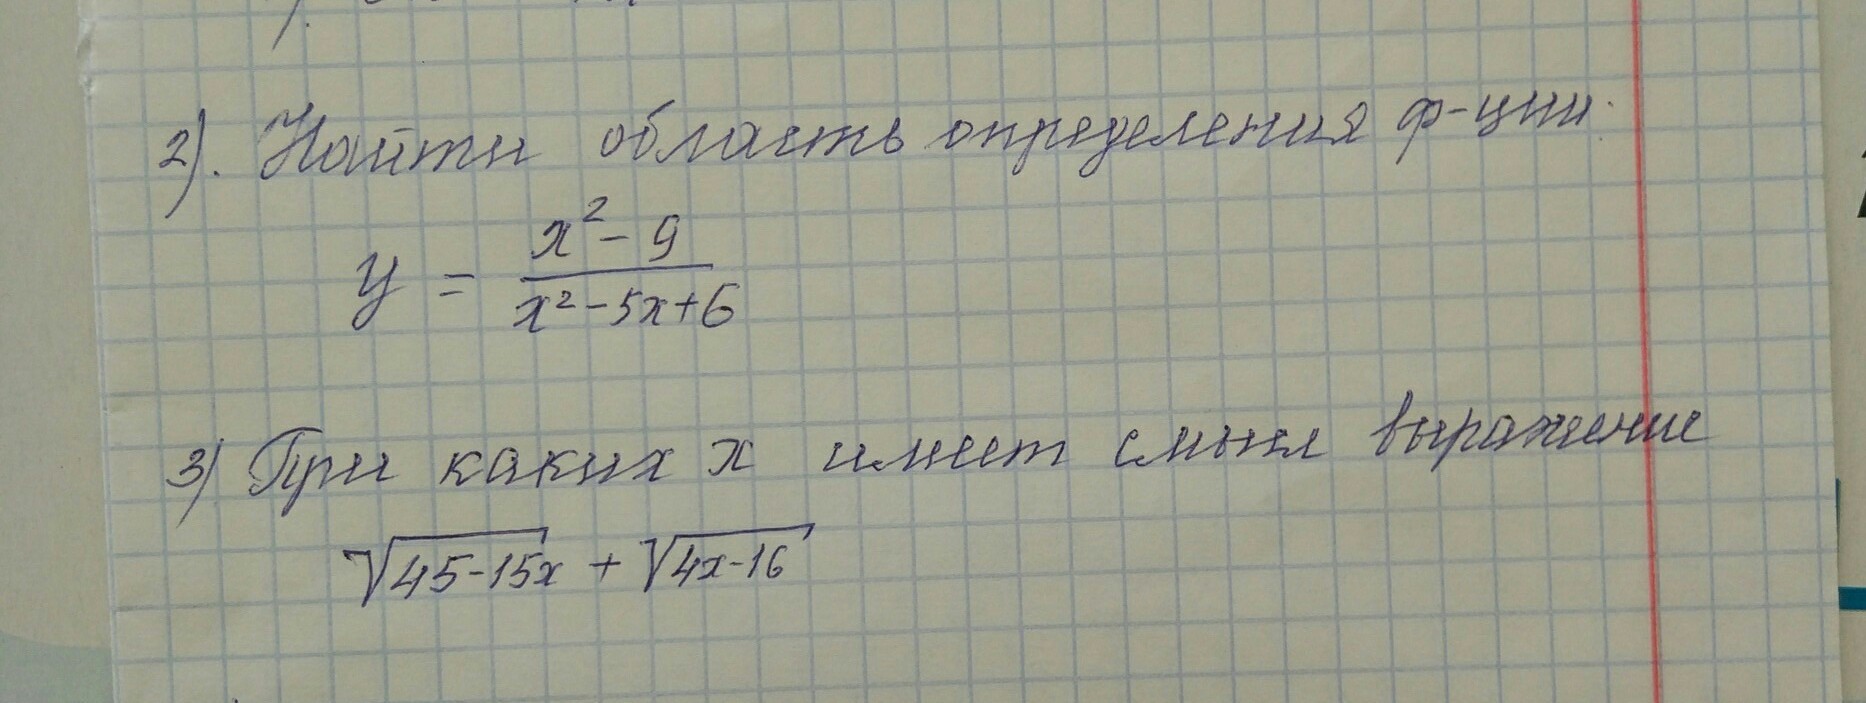 2). Найти область определения ф-ции.
y = \frac{x^2 - 9}{x^2 - 5x + 6}
3) При каких x имеет смысл выражение
\sqrt{45-15x} + \sqrt{4x-16}